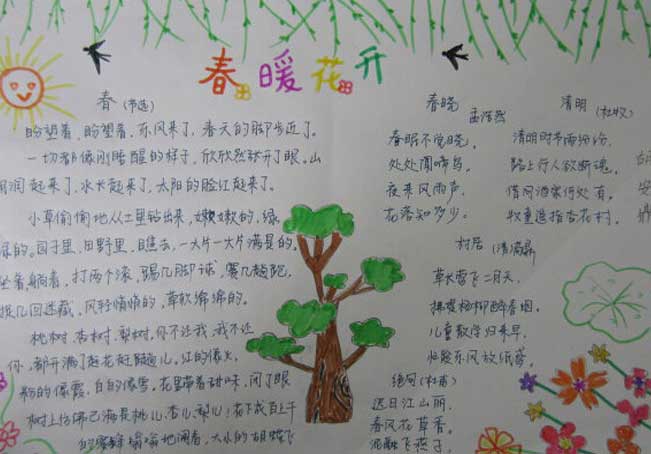 春暖花开
春 (节选)
盼望着,盼望着,东风来了,春天的脚步近了。
一切都像刚睡醒的样子,欣欣然张开了眼。山
朗润起来了,水长起来了,太阳的脸红起来了。
小草偷偷地从土里钻出来,嫩嫩的,绿
绿的。园子里,田野里,瞧去,一大片一大片满是的。
坐着,躺着,打两个滚,踢几脚球,赛几趟跑,
捉几回迷藏。风轻悄悄的,草软绵绵的。
桃树、杏树、梨树,你不让我,我不让
你,都开满了花赶趟儿。红的像火,
粉的像霞,白的像雪。花里带着甜味,闭了眼
树上仿佛已满是桃儿、杏儿、梨儿!花下成百上千
的蜜蜂嗡嗡地闹着,大小的蝴蝶飞
春晓 孟浩然
春眠不觉晓,
处处闻啼鸟。
夜来风雨声,
花落知多少。
清明 (杜牧)
清明时节雨纷纷,
路上行人欲断魂。
借问酒家何处有,
牧童遥指杏花村。
村居 (清高鼎)
草长莺飞二月天,
拂堤杨柳醉春烟。
儿童散学归来早,
忙趁东风放纸鸢。
绝句(杜甫)
迟日江山丽,
春风花草香。
泥融飞燕子,